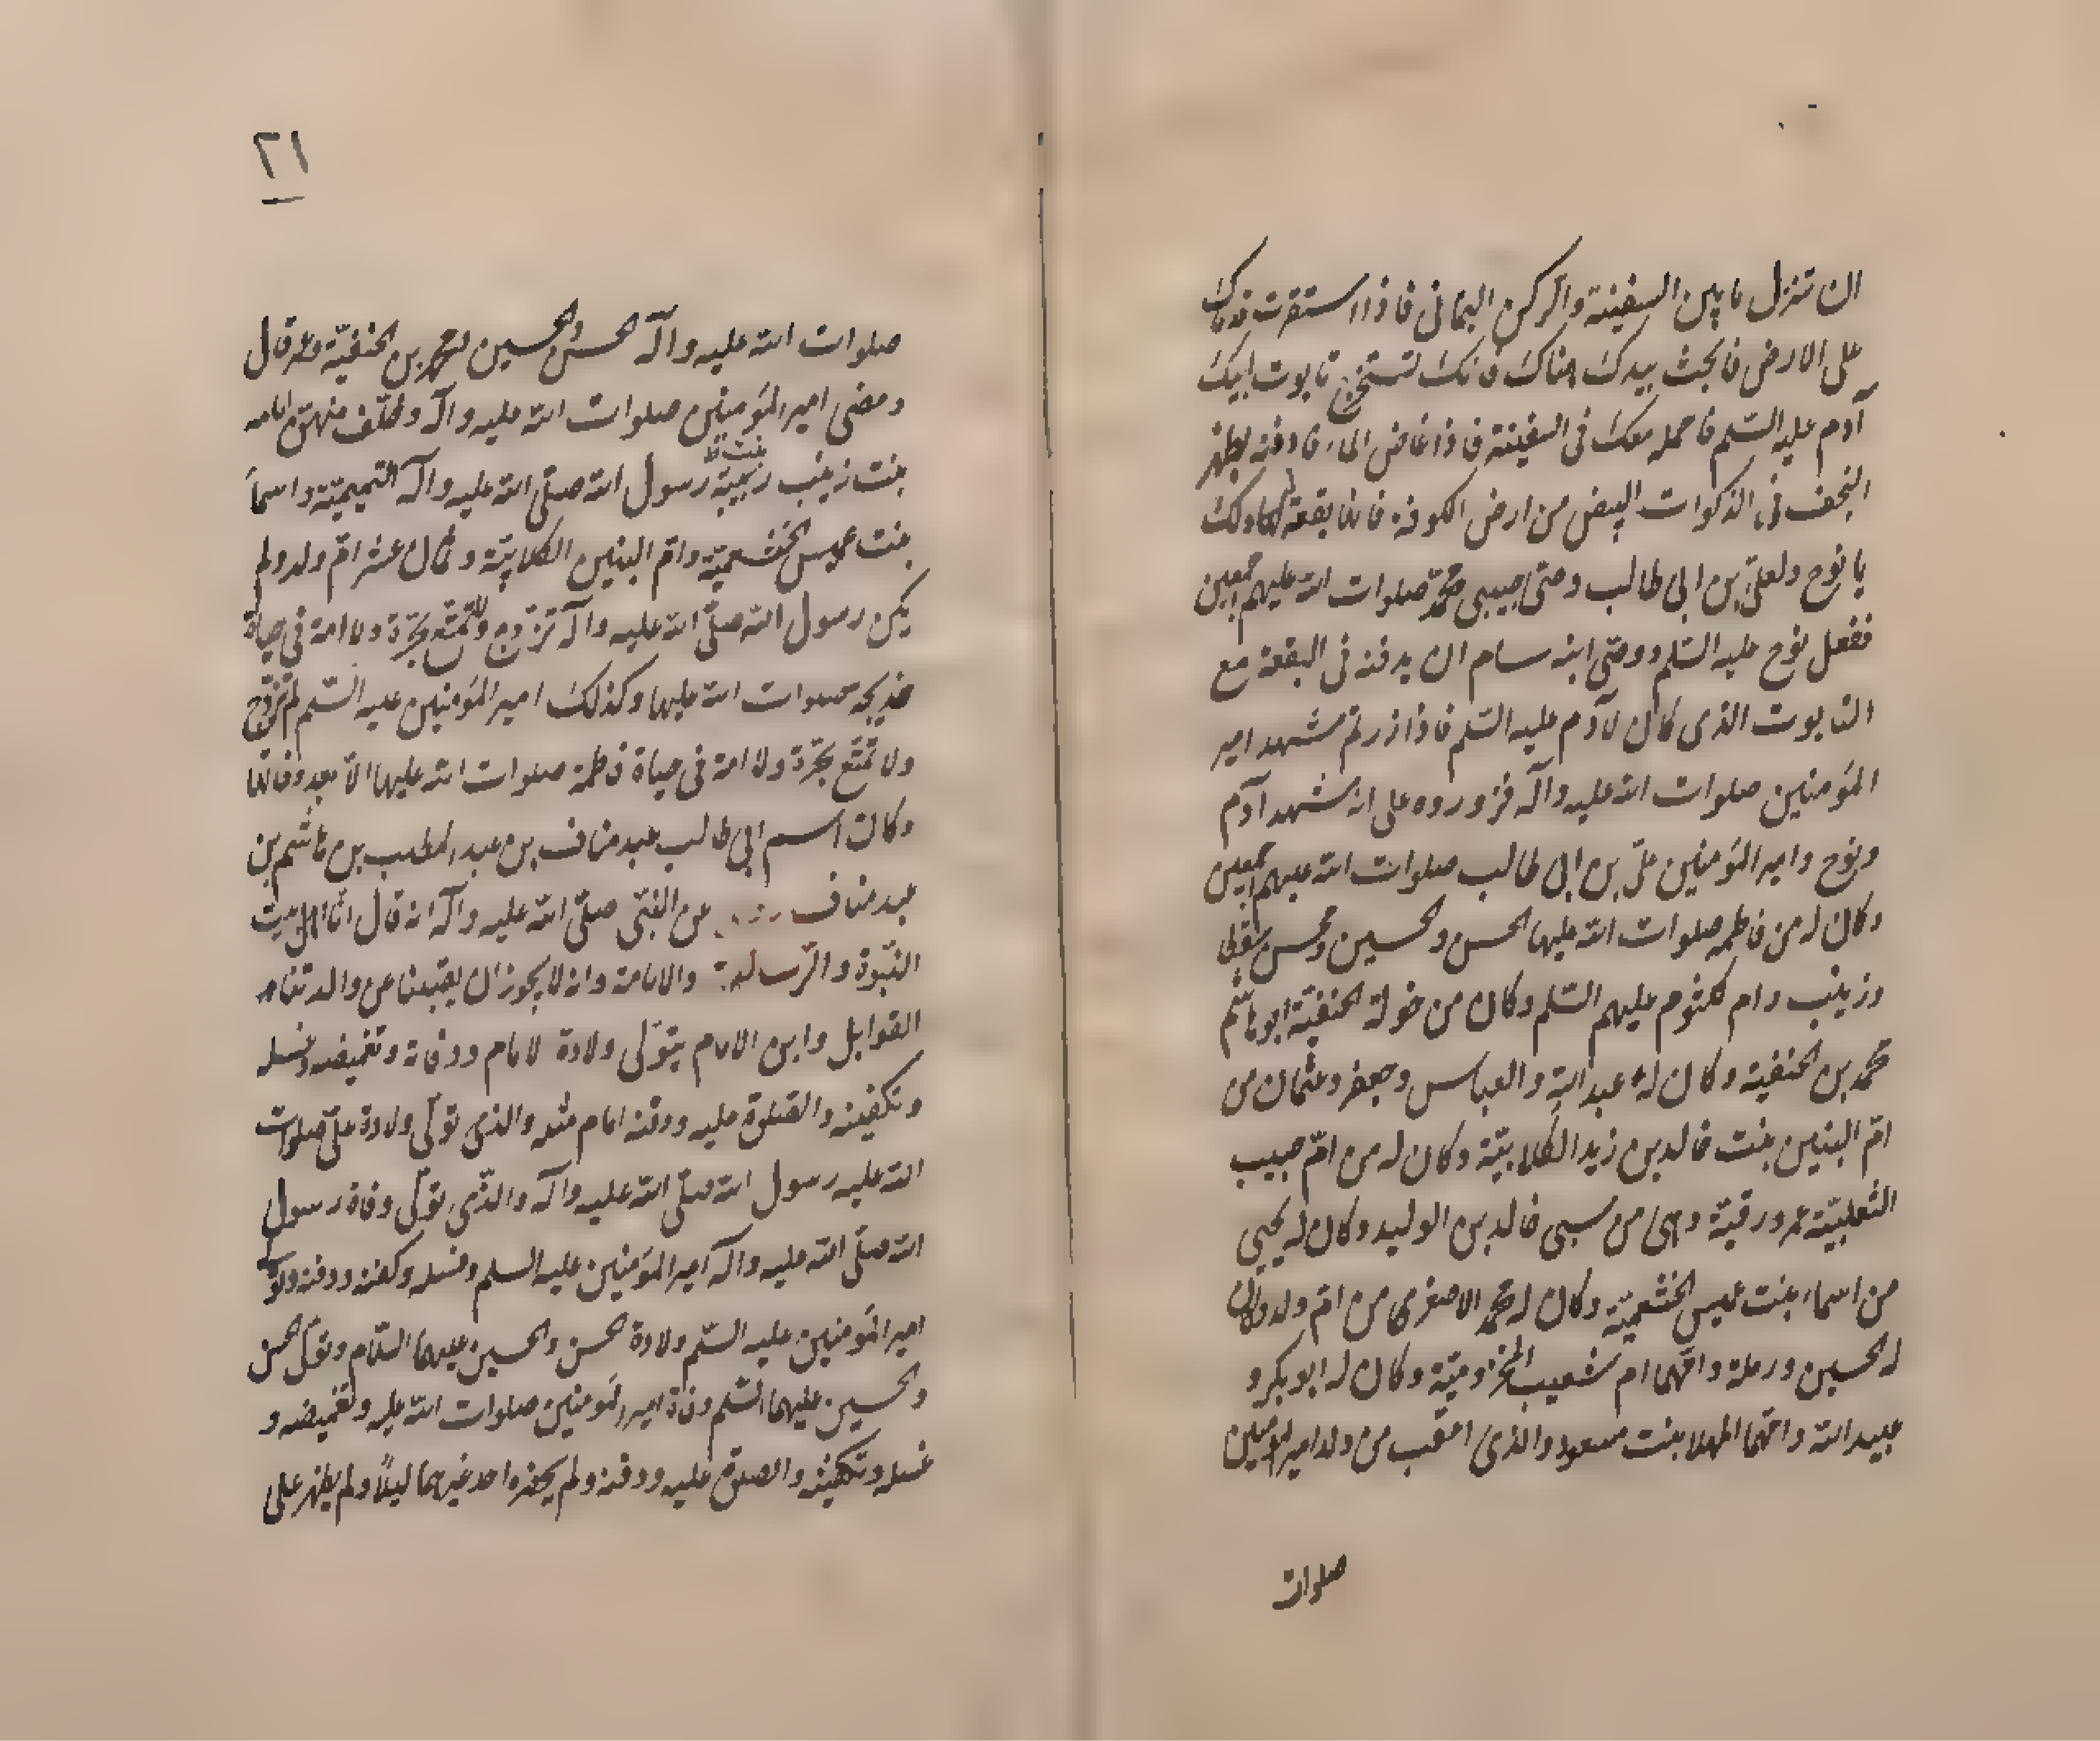 ان تنزل ما بين السفينة والركن اليماني فاذا استقرت قدماك
على الارض فابحث بيدك هناك فانك تستخرج تابوت ابيك
آدم عليه السلم فاحمله معك في السفينة فاذا غاض الماء فادفنه بظهر
النجف في الذكوات البيض من ارض الكوفة فانها بقعة لك
يا نوح ولعلي بن ابي طالب وصي حبيبي محمد صلوات الله عليهم اجمعين
ففعل نوح عليه السلم ووصى ابنه سام ان يدفنه في البقعة مع
التابوت الذي كان لآدم عليه السلم فاذا زرتم مشهد امير
المؤمنين صلوات الله عليه وآله فزوروه على انه مشهد آدم
ونوح وامير المؤمنين علي بن ابي طالب صلوات الله عليهم اجمعين
وكان له من فاطمه صلوات الله عليها الحسن والحسين ومحسن سقط
وزينب وام كلثوم عليهم السلم وكان من خولة الحنفية ابو هاشم
محمد بن الحنفية وكان له عبد الله والعباس وجعفر وعثمان من
ام البنين بنت خالد بن زيد الكلابية وكان له من ام حبيب
التغلبية عمر ورقية وهي من سبي خالد بن الوليد وكان له يحيى
من اسماء بنت عميس الخثعمية وكان له محمد الاصغر من ام ولد وكان
له الحسين ورملة وامهما ام شعيب المخزومية وكان له ابو بكر و
عبيد الله وامهما بنت مسعود والذي اعقب من ولد امير المؤمنين
صلوات
٢١
صلوات الله عليه وآله الحسن والحسين ومحمد بن الحنفية قال
ومضى امير المؤمنين صلوات الله عليه وآله وخلف منهن امامه
بنت زينب ربيبة رسول الله صلى الله عليه وآله التميمية واسما
بنت عميس الخثعمية وام البنين الكلابية و عشر ام ولد ولم
يكن رسول الله صلى الله عليه وآله تزوج ولا تمتع بحرة ولا امة في حياة
خديجه صلوات الله عليها وكذلك امير المؤمنين عليه السلم لم تزوج
ولا تمتع بحرة ولا امة في حياة فاطمة صلوات الله عليها الا بعد وفاتها
وكان اسم ابي طالب عبد مناف بن عبد المطلب بن هاشم بن
عبد مناف عن النبي صلى الله عليه وآله انه قال انا اهل بيت
النبوة والرسالة والامامة وانه لا يجوز ان يقبلنا عن ولادتنا
القوابل وابن الامام يتولى ولادة لامام ووفاته وتغميضه وغسله
وتكفينه والصلوة عليه ودفنه امام مثله والذي تولى ولادة علي صلوات
الله عليه رسول الله صلى الله عليه وآله والذي تولى وفاة رسول
الله صلى الله عليه وآله امير المؤمنين عليه السلم وغسله وكفنه ودفنه وتولى
امير المؤمنين عليه السلم ولادة الحسن والحسين عليهما السلام وتولى الحسن
والحسين عليهما السلم وفاة امير المؤمنين صلوات الله عليه وتغميضه و
غسله وتكفينه والصلوة عليه ودفنه ولم يحضره احد غيرهما ليلا ولم يظهر على